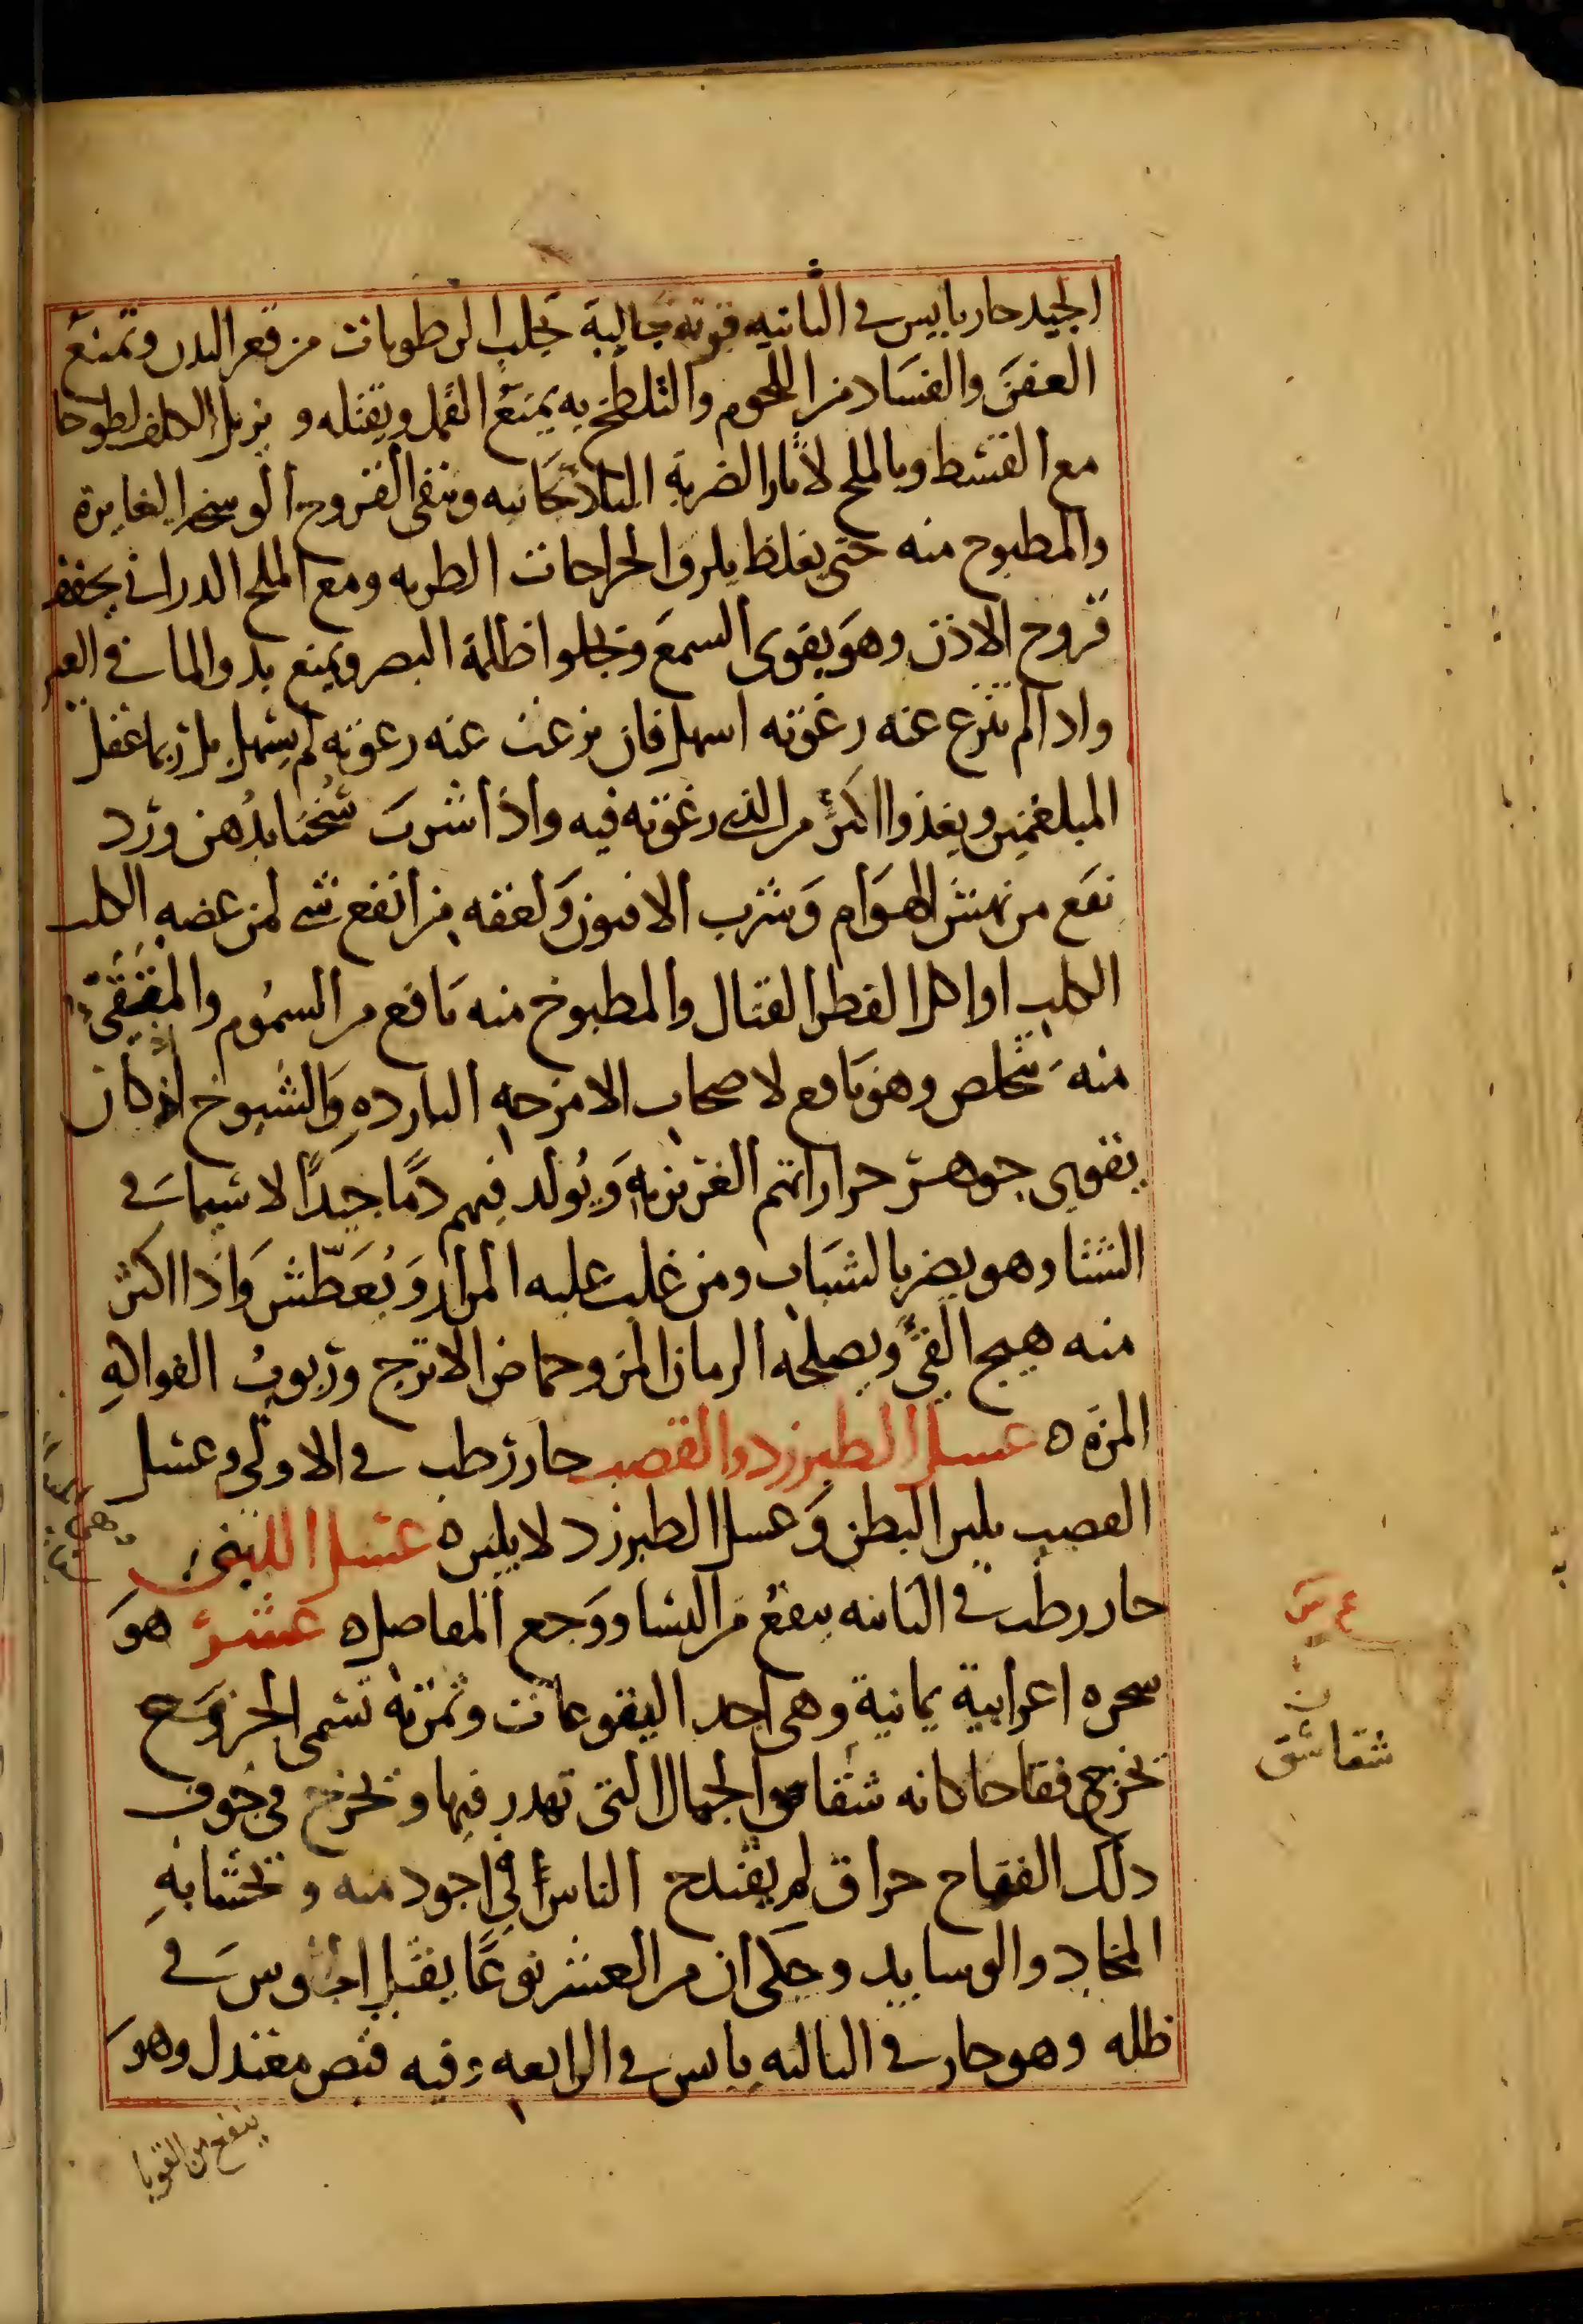 الجيد حار يابس في الثانيه قوته جالية تجلب الرطوبات من قعر البدن وتمنع
العفن والفساد من اللحوم والتلطخ به يمنع القمل ويقتله و يزيل الكلف لطوخا
مع القسط وبالملح لاثار الضربة الباذنجانيه وينقى القروح الوسخه الغايرة
والمطبوخ منه حتى يغلظ يلزق الجراحات الطريه ومع الملح الدرانى يجفف
قروح الاذن وهو يقوى السمع ويجلوا ظلمة البصر ويمنع بدو الما في العين
واذا لم تنزع عنه رغوته اسهل فان نزعت عنه رغوته لم يسهل بل ربما عقل
المبلغمين ويغذوا اكثر من الذي رغوته فيه واذا شرب سخنا بدهن ورد
نفع من نهش الهوام وشرب الافيون ولعقه من انفع شى لمن عضه الكلب
الكلب او اكل الفطر القتال والمطبوخ منه نافع من السموم والمتقيئ
منه يتخلص وهو نافع لاصحاب الامزجه البارده والشيوخ اذ كان
يقوى جوهر حراراتهم الغريزيه ويولد فيهم دما جيدا لا سيما في
الشتا وهو يضر بالشباب ومن غلب عليه المرار ويعطش واذا اكثر
منه هيج القئ ويصلحه الرمان المز وحماض الاترج وربوب الفواكه
المزه ه عسل الطبرزد والقصب حار رطب في الاولى وعسل
القصب يلين البطن وعسل الطبرزد لا يلين ه عسل اللبنى
حار رطب في الثانيه ينفع من النسا ووجع المفاصل ه عشر هو
شجره اعرابية يمانية وهى احد اليتوعات وثمرته تسمى الخروع
تخرج فقاحا كانه شقاشق الجمال التى تهدر فيها وتخرج في جوف
ذلك الفقاح حراق لم يقتدح الناس في اجود منه و تحشا به
المخاد والوسايد وحكى ان من العشر نوعا يقتل الجلوس في
ظله وهو حار في الثالثه يابس في الرابعه وفيه قبض معتدل وهو
ينفع من القوبا
شقاشق